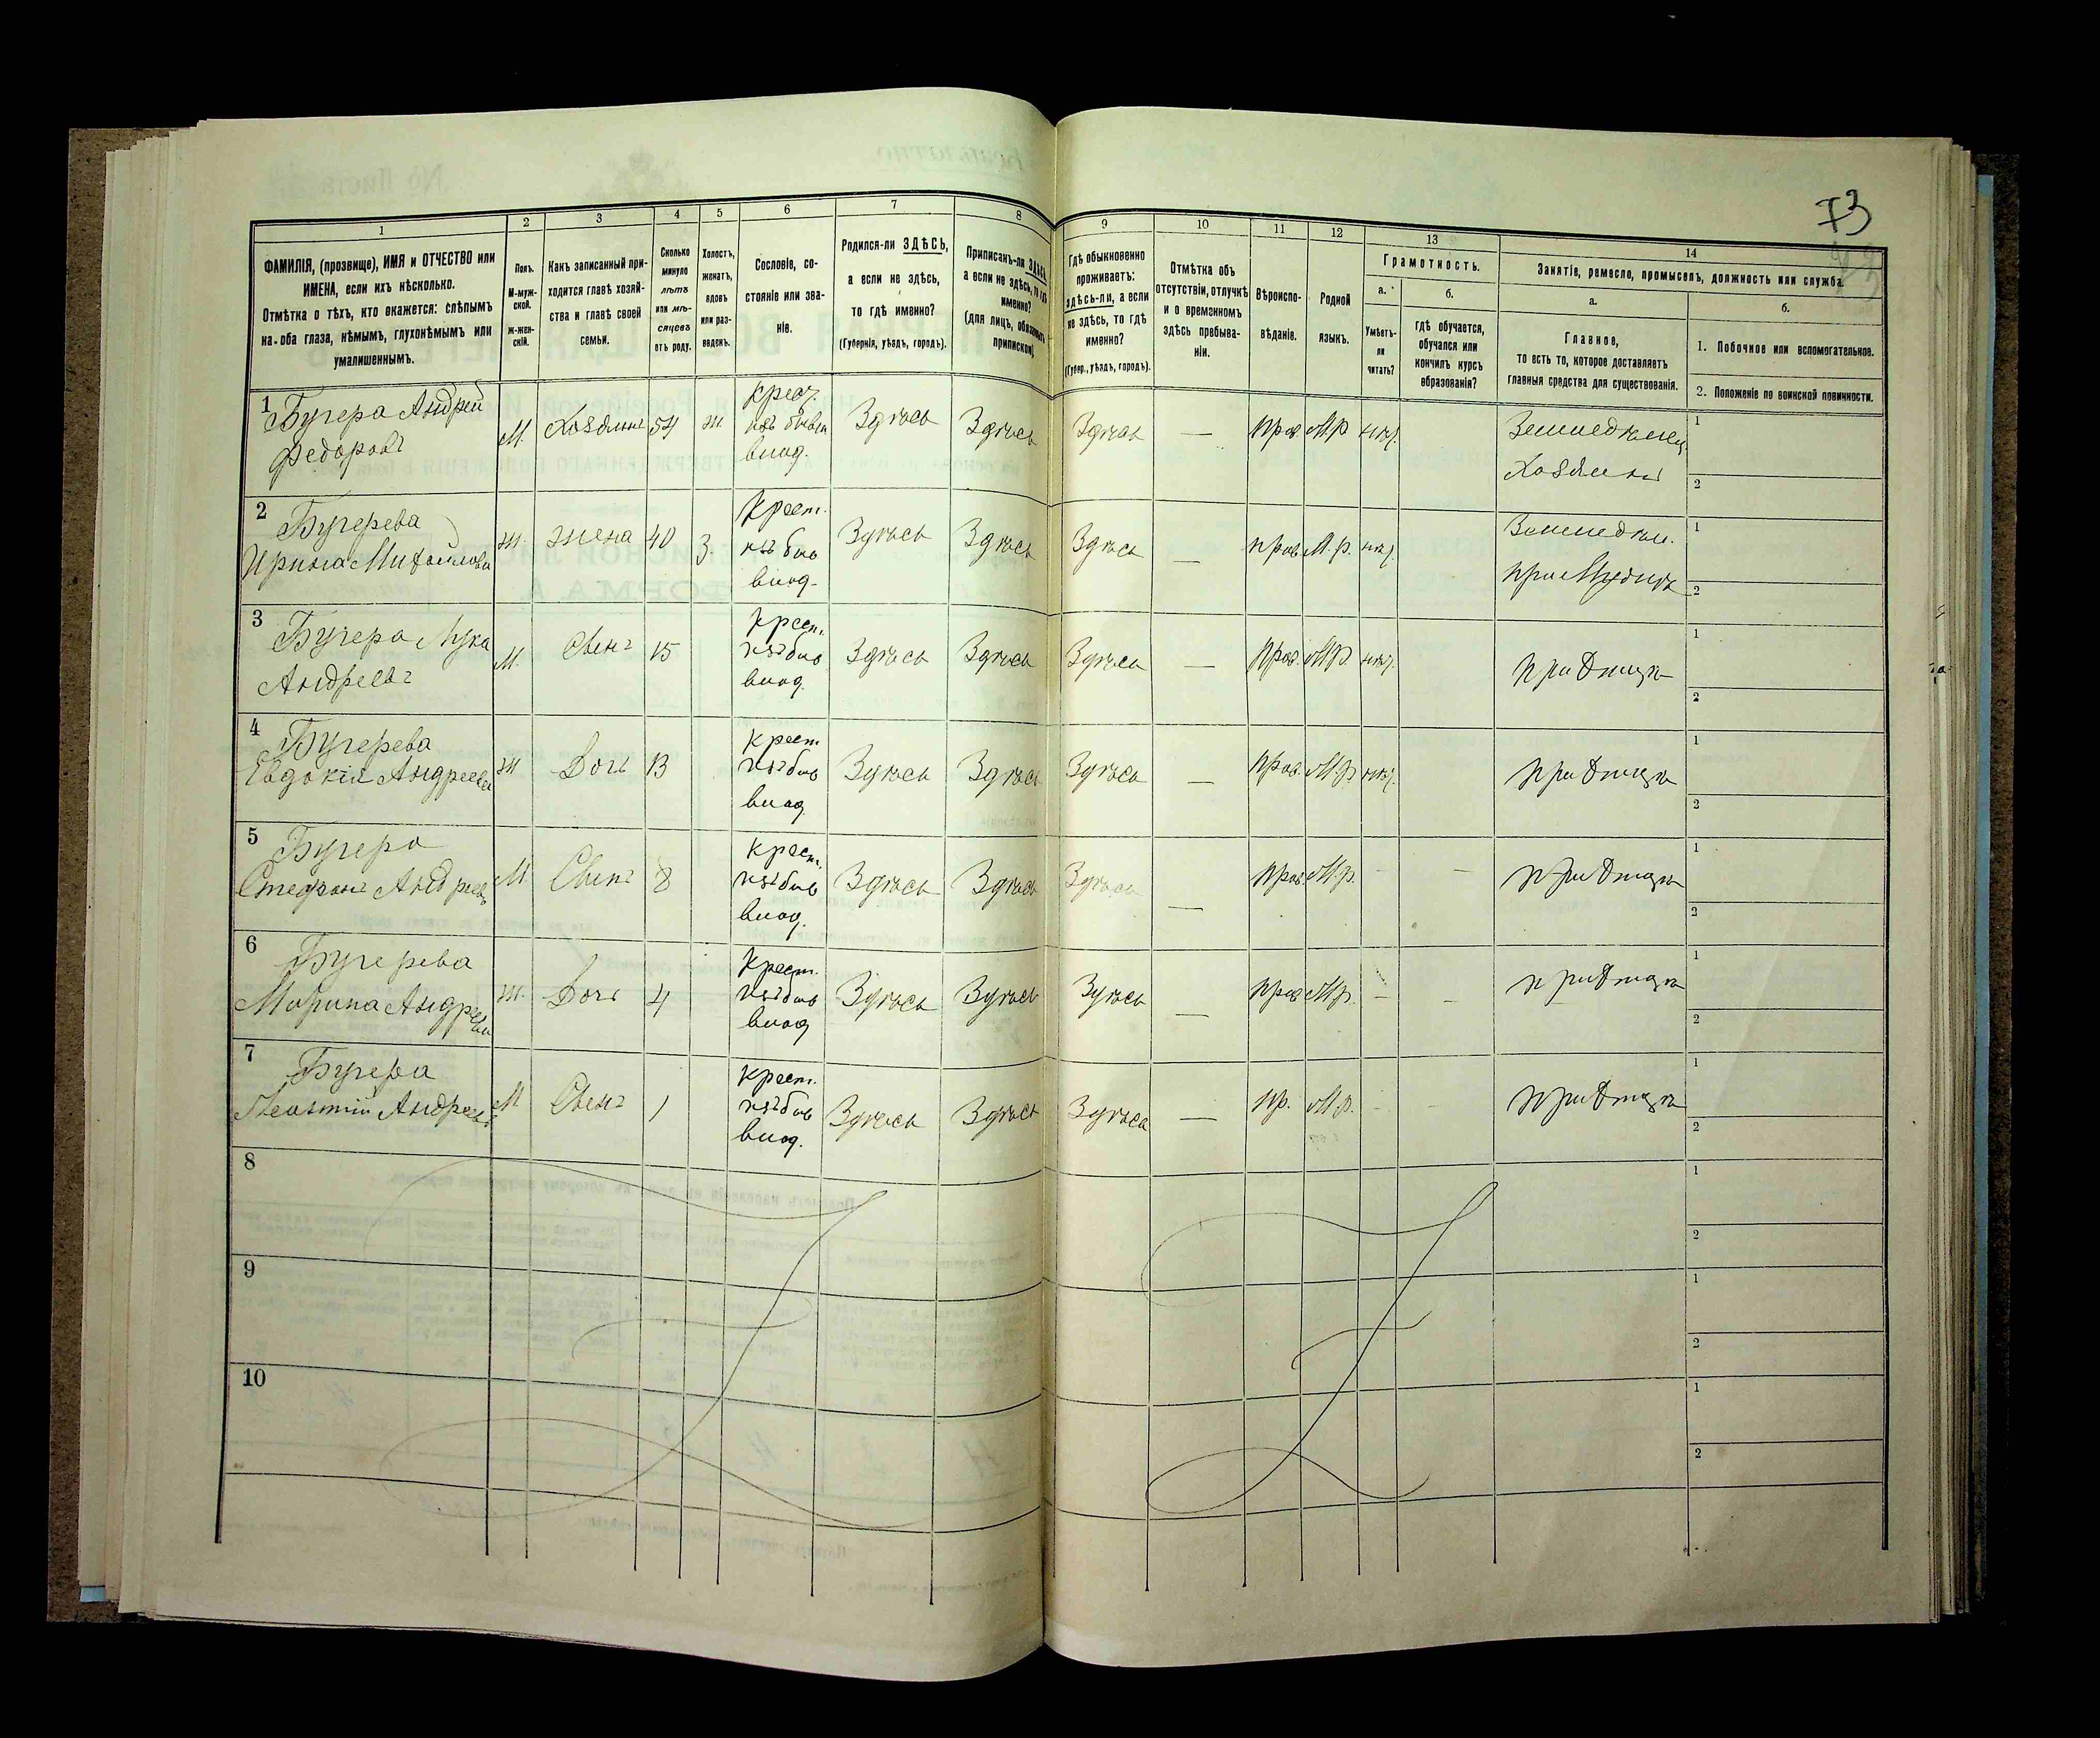 73
1
2
3
4
5
6
7
8
9
10
11
12
13
14
ФАМИЛІЯ, (прозвище), ИМЯ и ОТЧЕСТВО или
ИМЕНА, если ихъ нѣсколько.
Отмѣтка о тѣхъ, кто окажется: слѣпымъ
на оба глаза, нѣмымъ, глухонѣмымъ или
умалишеннымъ.
Полъ.
М-муж-
ской.
Ж-жен-
скій.
Какъ записанный при-
ходится главѣ хозяй-
ства и главѣ своей
семьи.
Сколько
минуло
лѣтъ
или мѣ-
сяцевъ
отъ роду.
Холостъ,
женатъ,
вдовъ
или раз-
веденъ.
Сословіе, со-
стояніе или зва-
ніе.
Родился-ли ЗДѢСЬ,
а если не здѣсь,
то гдѣ именно?
(Губернія, уѣздъ, городъ).
Приписанъ-ли ЗДѢСЬ,
а если не здѣсь, то гдѣ
именно?
(для лицъ, обязанныхъ
припиской).
Гдѣ обыкновенно
проживаетъ:
здѣсь-ли, а если
не здѣсь, то гдѣ
именно?
(Губер., уѣздъ, городъ).
Отмѣтка объ
отсутствіи, отлучкѣ
и о временномъ
здѣсь пребыва-
ніи.
Вѣроиспо-
вѣданіе.
Родной
языкъ.
Грамотность.
а.
Умѣетъ-
ли
читать?
б.
гдѣ обучается,
обучался или
кончилъ курсъ
образованія?
Занятіе, ремесло, промыселъ, должность или служба.
а.
Главное,
то есть то, которое доставляетъ
главныя средства для существованія.
б.
1. Побочное или вспомогательное.
2. Положеніе по воинской повинности.
1 Бугера Андрей
Федоровъ
М. Хозяинъ 54 ж
Крест.
изъ бывш
влад.
Здѣсь Здѣсь Здѣсь — Прав. М.р. нѣт.
Земледѣлец
Хозяинъ
1
2
2 Бугерева
Ирина Михайлова
Ж. жена 40 З.
Крест.
изъ быв
влад.
Здѣсь Здѣсь Здѣсь — прав. М.р. нѣт.
Земледѣл.
при Мужѣ
1
2
3 Бугера Лука
Андреевъ
М. Сынъ 15
Крест.
изъ быв
влад.
Здѣсь Здѣсь Здѣсь — Прав. М.р. нѣт.
при Отцѣ
1
2
4 Бугерева
Евдокія Андреева
Ж Дочь 13
Крест.
изъ быв
влад.
Здѣсь Здѣсь Здѣсь — Прав. М.р. нѣт.
при Отцѣ
1
2
5 Бугера
Стефанъ Андреевъ
М. Сынъ 8
Крест.
изъ быв
влад.
Здѣсь Здѣсь Здѣсь — Прав. М.р. - -
при Отцѣ
1
2
6 Бугерева
Марина Андреева
Ж. Дочь 4
Крест.
изъ быв
влад
Здѣсь Здѣсь Здѣсь — Прав М.р. - -
при Отцѣ
1
2
7 Бугера
Андреевъ
М Сынъ 1
Крест.
изъ быв
влад.
Здѣсь Здѣсь Здѣсь — Пр. М.р. - -
при Отцѣ
1
2
8
1
2
9
1
2
10
1
2